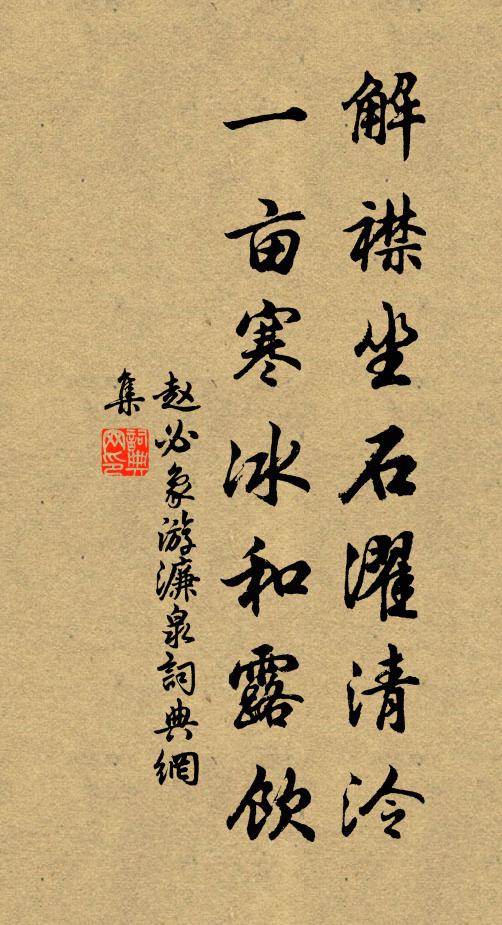 解襟坐石濯清泠
一亩寒冰和露饮
赵必象游濂泉詞典網
集
詞典網印